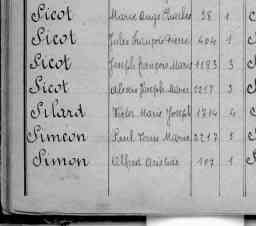 Sicot Marie Ange Charles 38 1
Sicot Jules François Pierre 404 1
Sicot Joseph François Marie 1183 3
Sicot Alexis Joseph Marie 2217 3
Silard Victor Marie Joseph 1714 4
Simeon Paul Louis Marie 2217 5
Simon Alfred Aristide 107 1